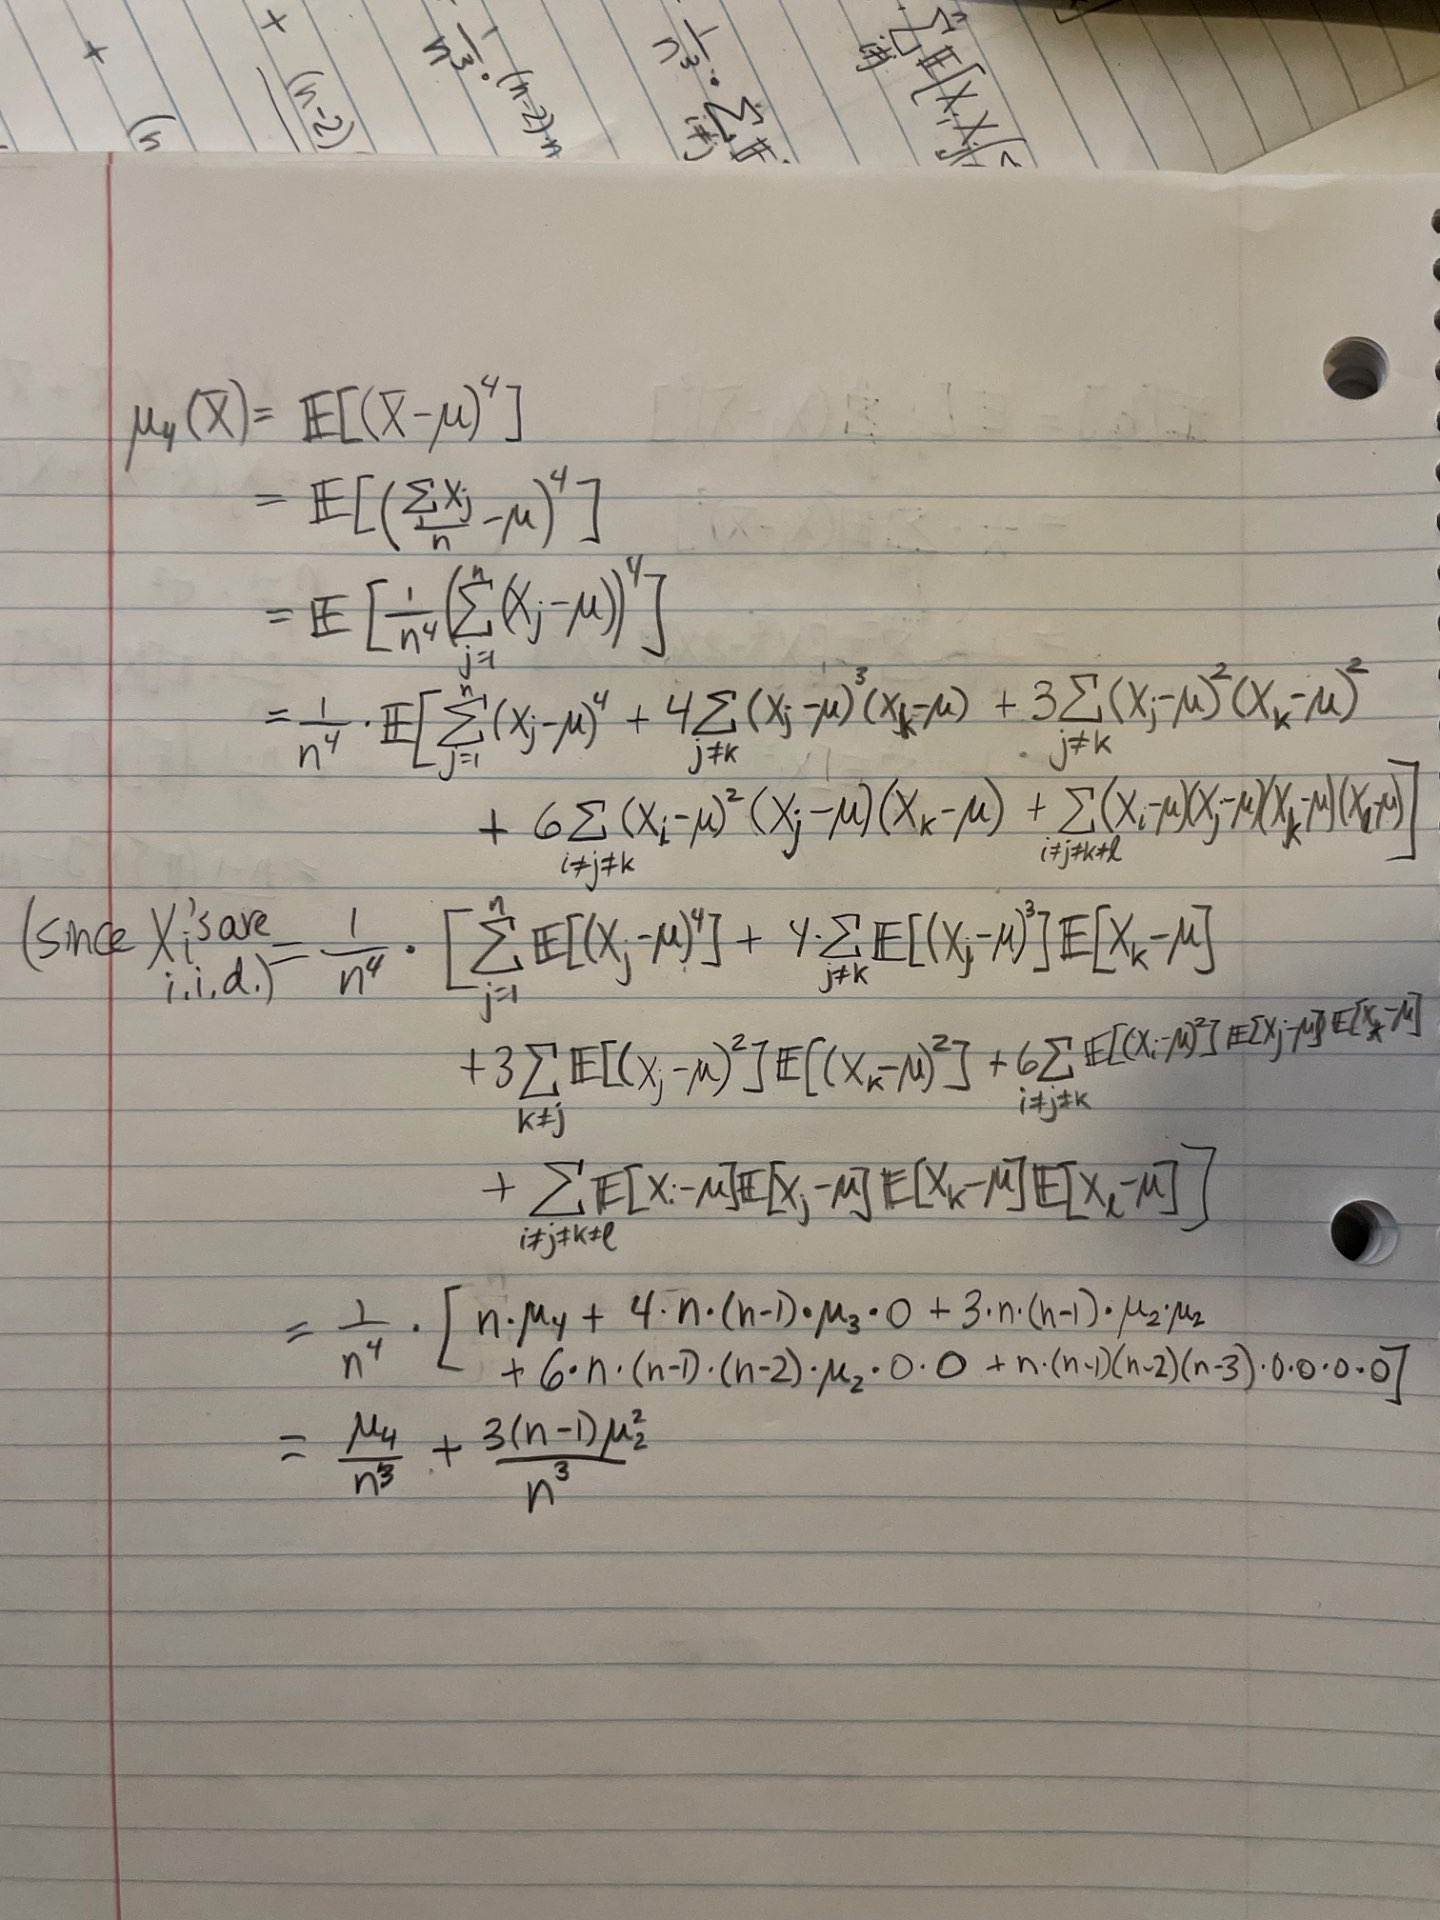 +
+
(n
(n-2)
1/n³ · (n-2)·n
1/n³ · Σ_{i≠j} 𝔼
Σ_{i≠j} 𝔼[X_i X_j]
μ₄(X̄) = 𝔼[(X̄-μ)⁴]
= 𝔼[(ΣX_j/n - μ)⁴]
= 𝔼[1/n⁴ (Σ_{j=1}^{n} (X_j-μ))⁴]
= 1/n⁴ · 𝔼[Σ_{j=1}^{n} (X_j-μ)⁴ + 4Σ_{j≠k} (X_j-μ)³(X_k-μ) + 3Σ_{j≠k} (X_j-μ)²(X_k-μ)²
+ 6Σ_{i≠j≠k} (X_i-μ)²(X_j-μ)(X_k-μ) + Σ_{i≠j≠k≠ℓ} (X_i-μ)(X_j-μ)(X_k-μ)(X_ℓ-μ)]
(since X_i's are i.i.d.) = 1/n⁴ · [Σ_{j=1}^{n} 𝔼[(X_j-μ)⁴] + 4·Σ_{j≠k} 𝔼[(X_j-μ)³]𝔼[X_k-μ]
+3Σ_{k≠j} 𝔼[(X_j-μ)²]𝔼[(X_k-μ)²] + 6Σ_{i≠j≠k} 𝔼[(X_i-μ)²]𝔼[X_j-μ]𝔼[X_k-μ]
+ Σ_{i≠j≠k≠ℓ} 𝔼[X_i-μ]𝔼[X_j-μ]𝔼[X_k-μ]𝔼[X_ℓ-μ]]
= 1/n⁴ · [n·μ₄ + 4·n·(n-1)·μ₃·0 + 3·n·(n-1)·μ₂·μ₂
+ 6·n·(n-1)·(n-2)·μ₂·0·0 + n·(n-1)(n-2)(n-3)·0·0·0·0]
= μ₄/n³ + 3(n-1)μ₂²/n³